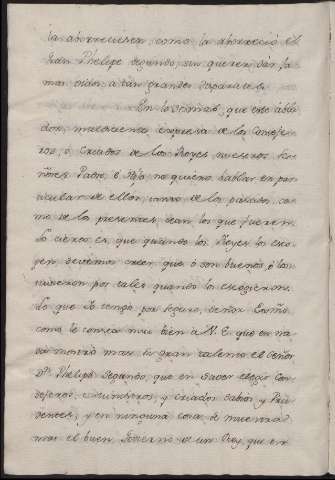 la aborreciesen, como la aborreció el
Gran Phelipe Segundo, sin querer dár ja-
mas oidos, a tan grandes disparates.
En lo demas, que este
don, maldiciente, de los Conseje-
ros, ó Criados de los Reyes nuestros Se-
ñores Padre, é Hijo, no quiero hablar en par-
ticular de ellos, assi de los pasados, co-
mo de los presentes, sean los que fueren.
Lo cierto es, que quando los Reyes los esco-
gen, devemos creer, que ó son buenos, ó los
tuvieron por tales, quando los escogieron.
Lo que Yo tengo por seguro, Señor
como le consta mui bien à V. E. que en na-
da mostró mas, su gran talento el Señor
Dn. Phelipe Segundo, que en saver elegir Con-
sejeros, Ministros, y Criados sabios, y Pru-
dentes, y en ninguna cosa, se muestra
mas el buen Govierno de un Rey, que en